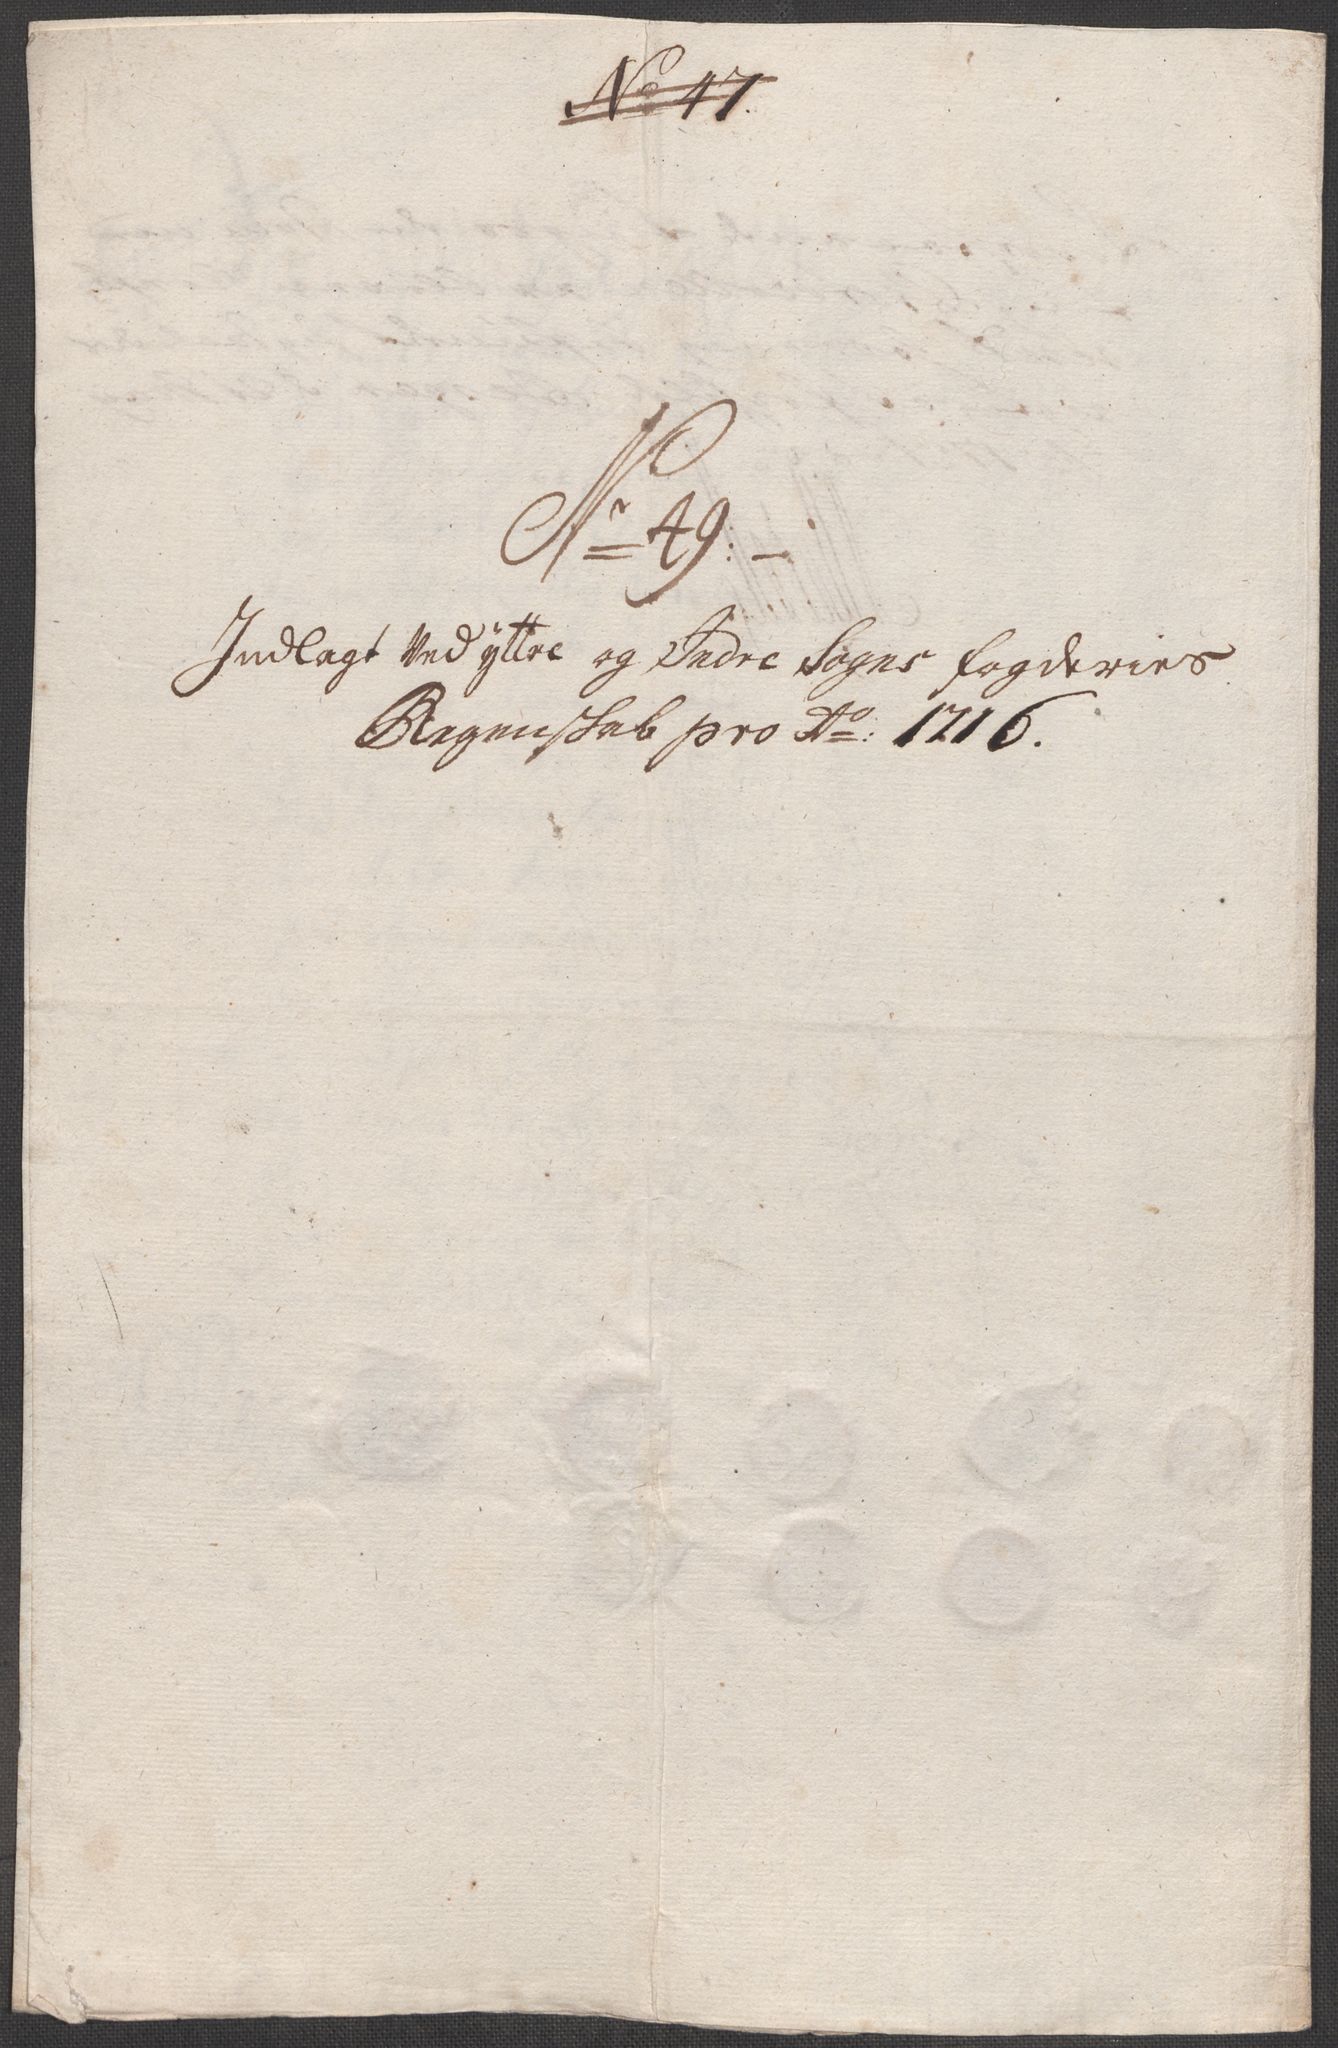 No 47.
Nr 49: -
Indlagt Ved Yttre og Indre Sogns fogderies
Regenskab pro Ao: 1716.